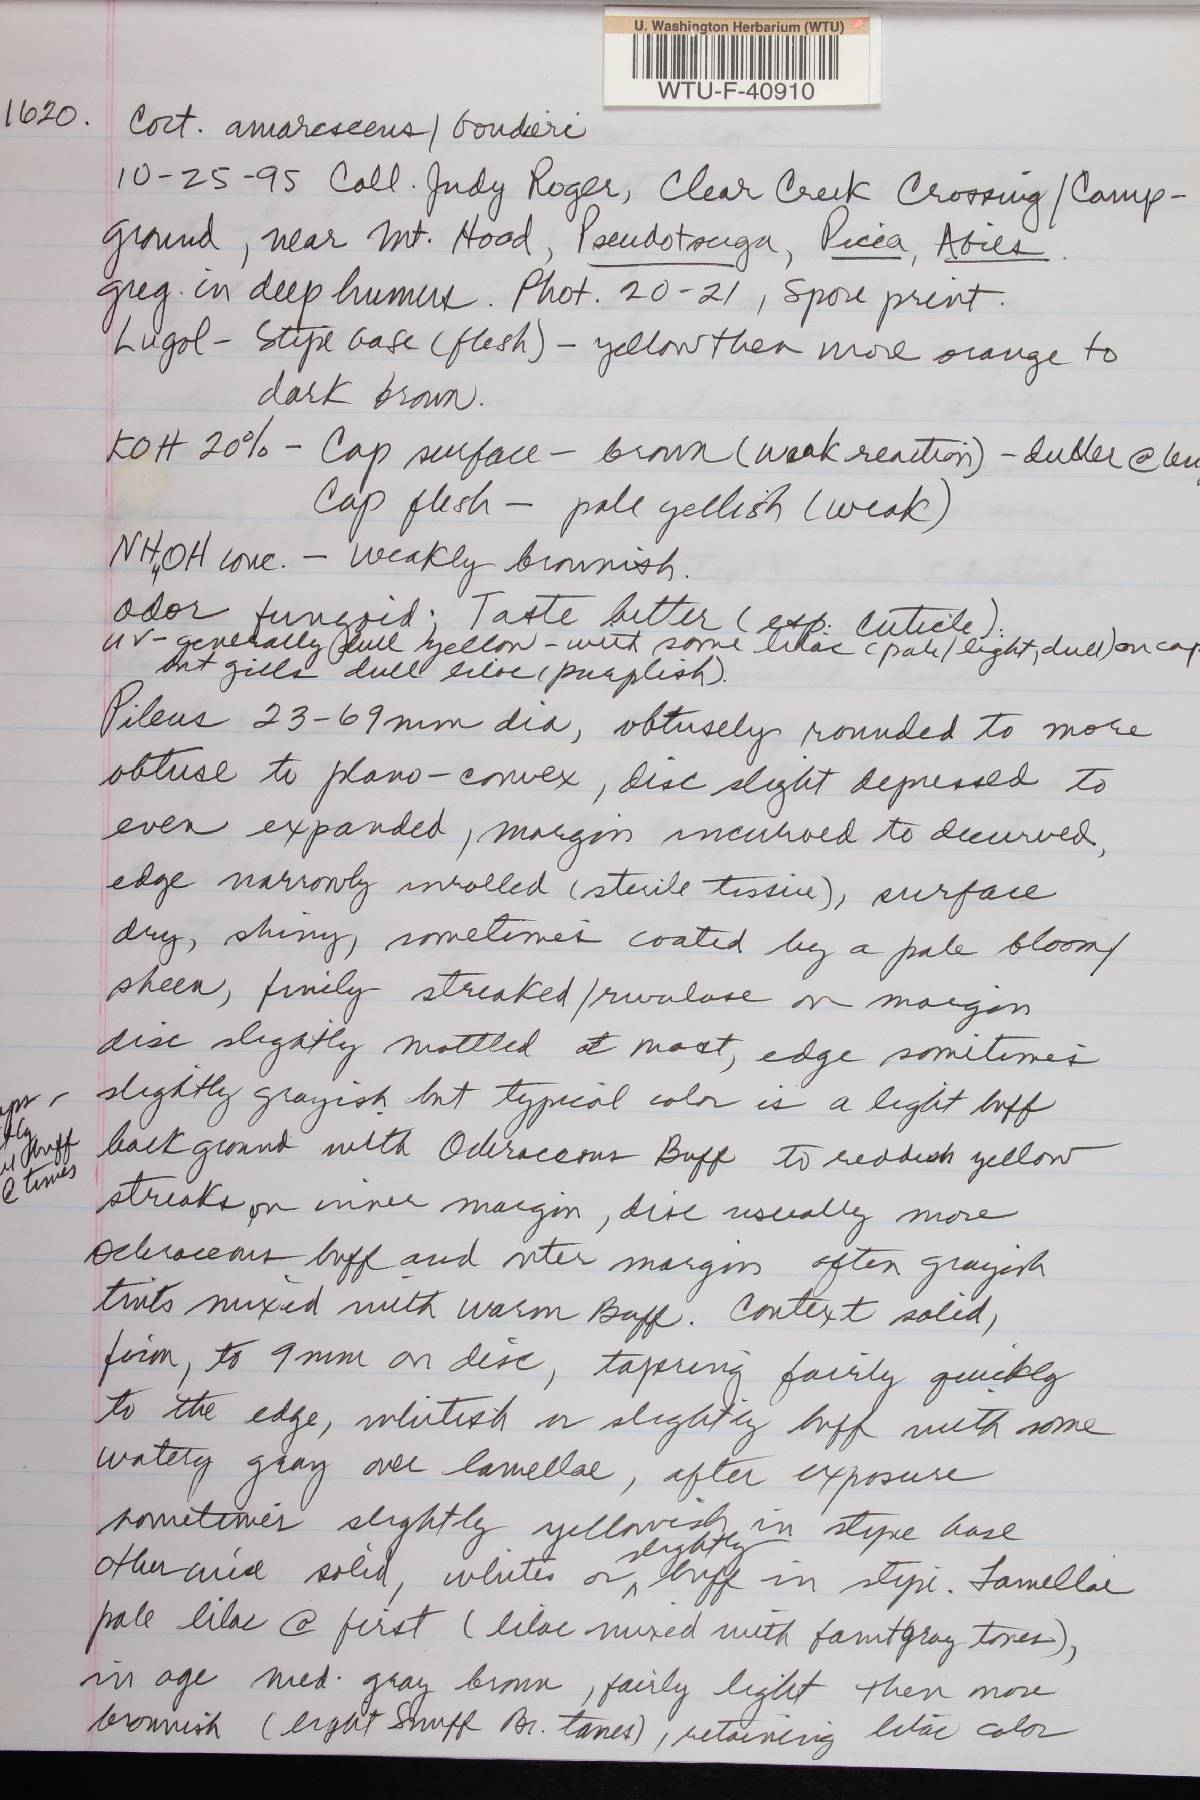 U. Washington Herbarium (WTU)
WTU-F-40910
1620. Cort. amarescens/boudieri
10-25-95 Coll. Judy Roger, Clear Creek Crossing/Camp-
ground, near Mt. Hood, Pseudotsuga, Picea, Abies.
greg. in deep humus. Phot. 20-21, Spore print.
Lugol - Stipe base (flesh) - yellow then more orange to
dark brown.
KOH 20% - Cap surface - brown (weak reaction) - duller @
Cap flesh - pale yellish (weak)
NH4OH conc. - weakly brownish.
Odor fungoid; Taste bitter (esp. Cuticle).
UV - generally dull yellow - with some lilac (pale/light, dull) on cap
but gills dull lilac (purplish).
Pileus 23-69mm dia, obtusely rounded to more
obtuse to plano-convex, disc slight depressed to
even expanded, margin incurved to decurved,
edge narrowly inrolled (sterile tissue), surface
dry, shiny, sometimes coated by a pale bloom/
sheen, finely streaked/rivulose on margin
disc slightly mottled at most, edge sometimes
slightly grayish but typical color is a light buff
background with Ochraceous Buff to reddish yellow
buff
@ times
streaks on inner margin, disc usually more
ochraceous buff and outer margin often grayish
tints mixed with Warm Buff. Context solid,
firm, to 9mm on disc, tapering fairly quickly
to the edge, whitish or slightly buff with some
watery gray over lamellae, after exposure
sometimes slightly yellowish in stipe base
otherwise solid, white or slightly buff in stipe. Lamellae
pale lilac @ first (lilac mixed with faint gray tones),
in age med. gray brown, fairly light then more
brownish (light Snuff Br. tones), retaining lilac color